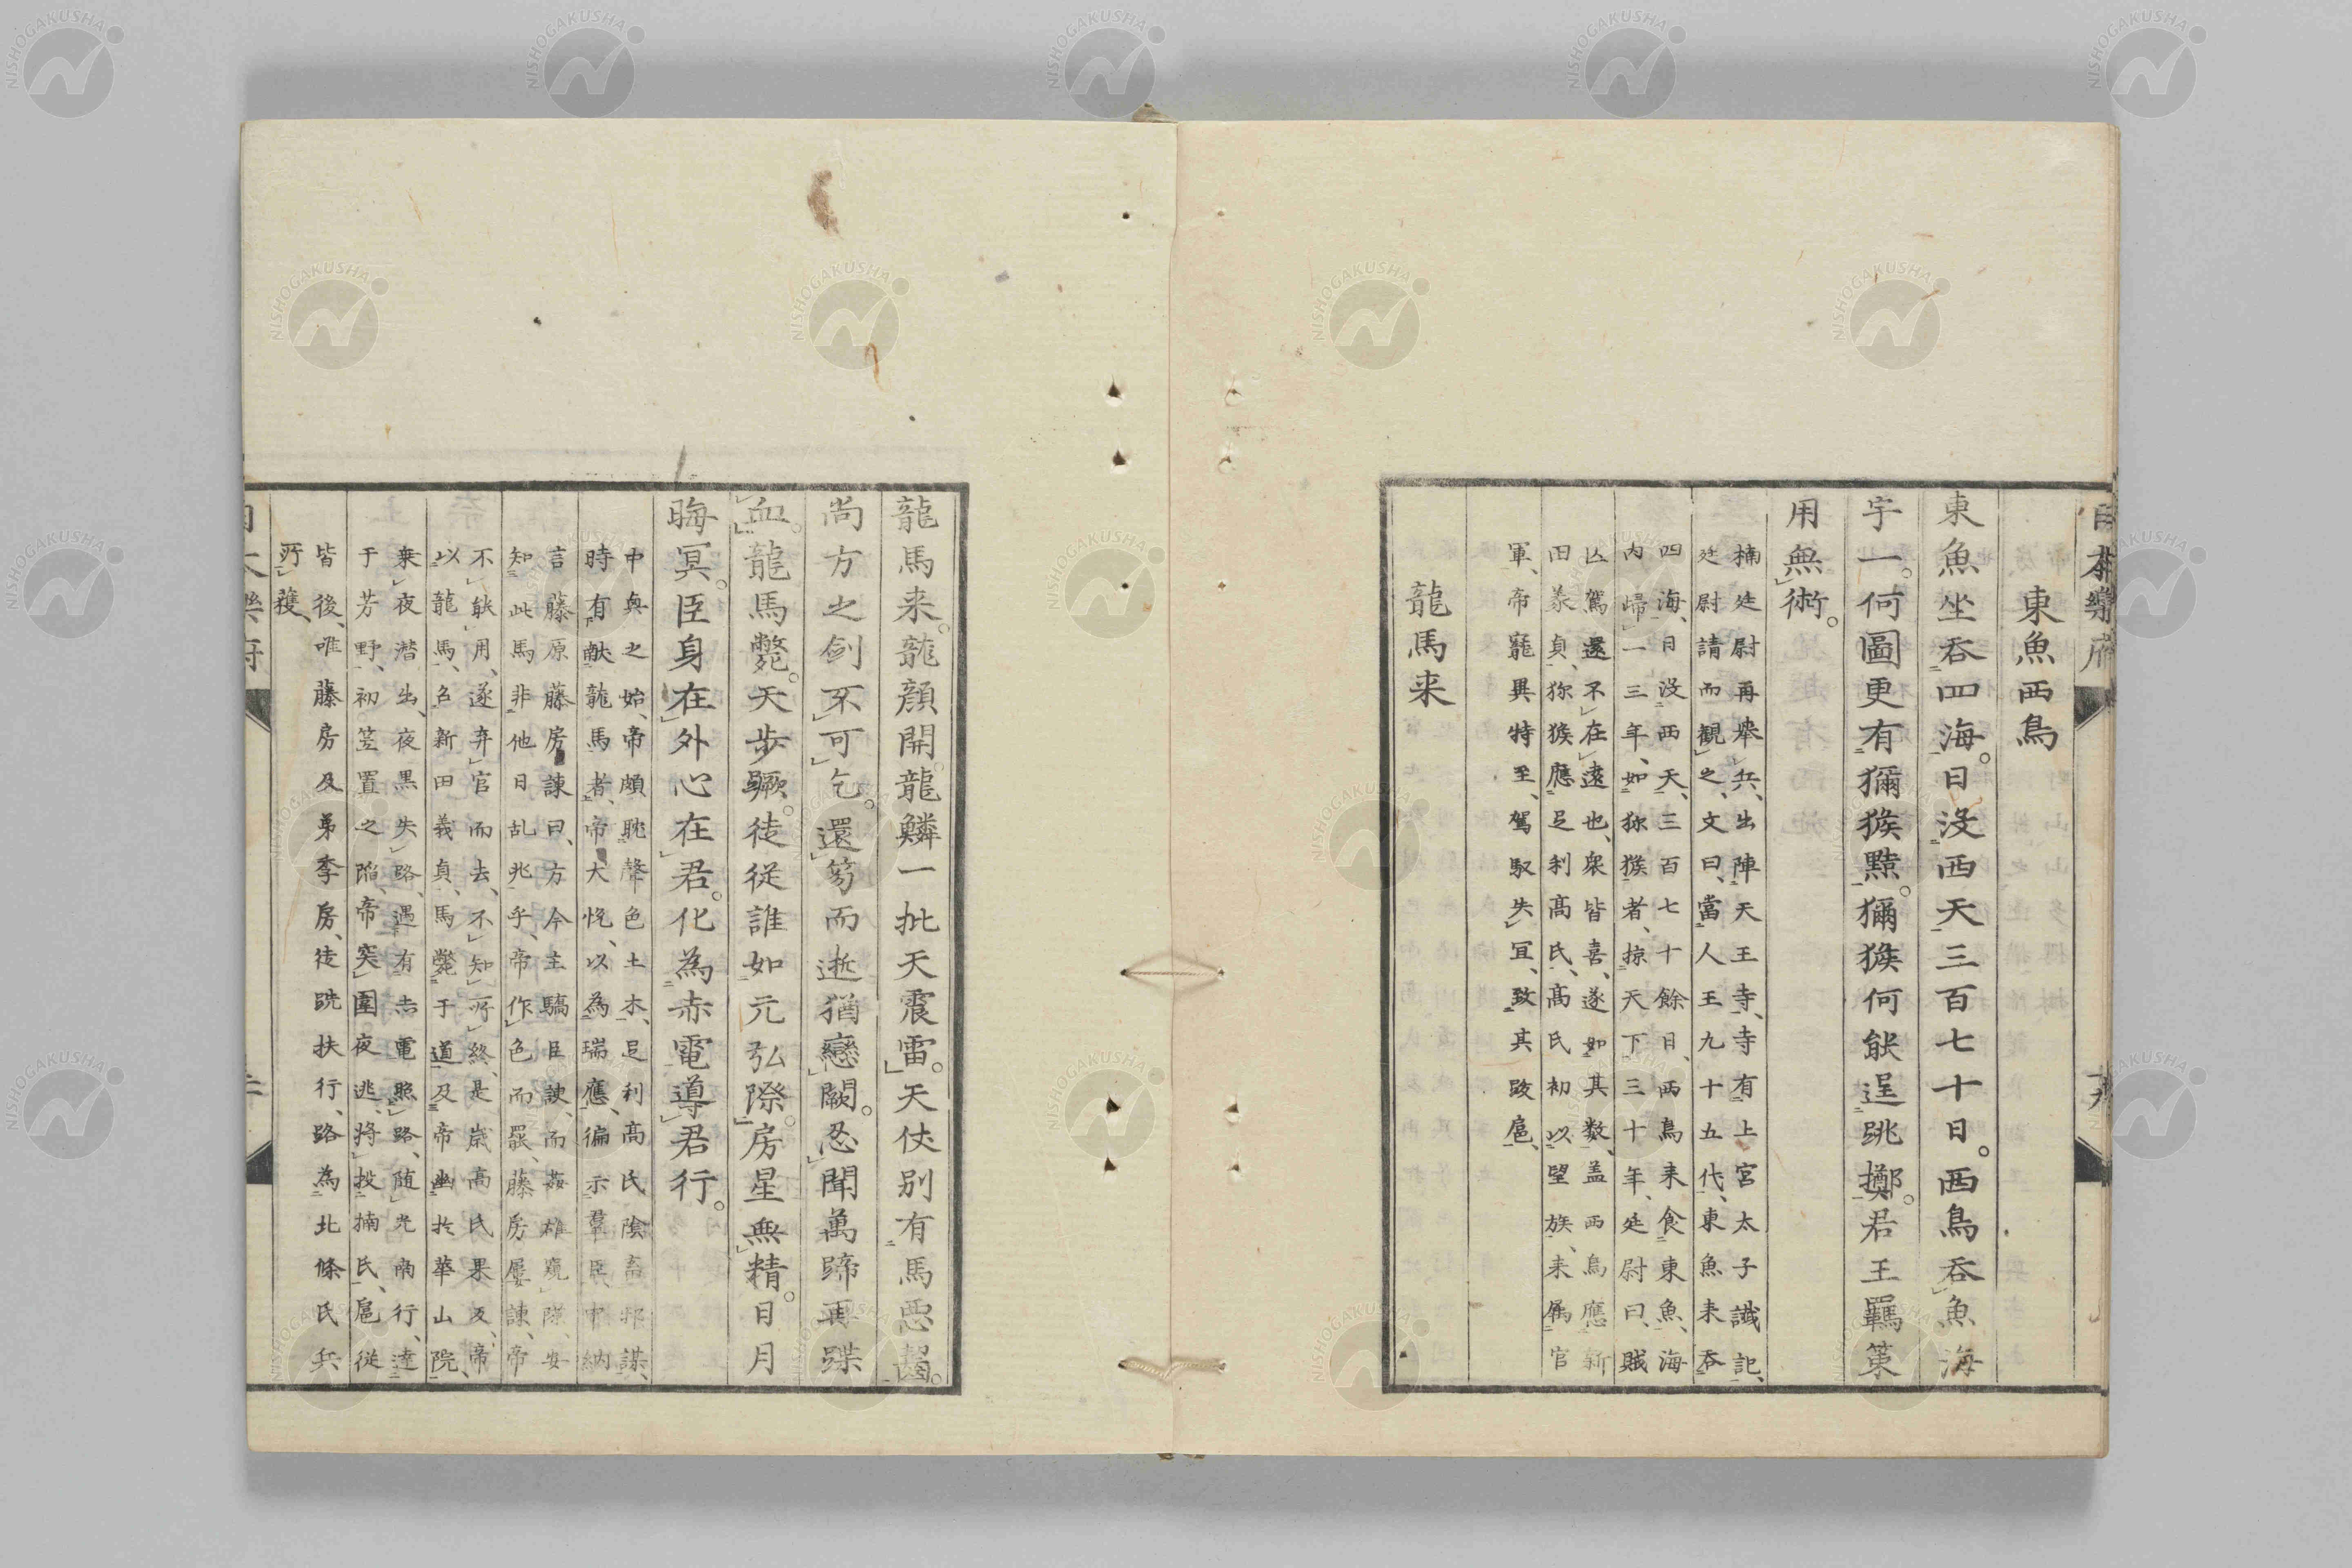 日本樂府
東魚西鳥
東魚坐吞四海。日沒西天三百七十日。西鳥吞魚海
宇一。何圖更有獼猴黠。獼猴何能逞跳擲。君王羈策
用無術。
楠廷尉再舉兵、出陣天王寺、寺有上宮太子讖記、
廷尉請而觀之、文曰、當人王九十五代、東魚来吞
四海、日沒西天、三百七十餘日、西鳥来食東魚、海
内歸一三年、如猕猴者、掠天下三十年、廷尉曰、賊
亾駕還不在遠也、衆皆喜、遂如其数、盖西鳥應新
田義貞、猕猴應足利髙氏、髙氏初以望族、来属官
軍、帝寵異特至、駕馭失宜、致其跋扈、
龍馬来
龍馬来。龍顔開。龍鱗一批天震雷。天仗別有馬悪齧。
尚方之剣不可乞。還芻而逝猶戀闕。忍聞萬蹄再蹀
血。龍馬斃。天步蹶。徒從誰如元弘際。房星無精。日月
晦冥。臣身在外心在君。化為赤電導君行。
中興之始、帝頗耽聲色土木、足利髙氏陰畜邪謀、
時有献龍馬者、帝大悅、以為瑞應、徧示羣臣、中納
言藤原藤房諫曰、方今主驕臣諛、而姦雄窺隙、安
知此馬非他日乱兆乎、帝作色而罷、藤房屢諫、帝
不能用、遂弃官而去、不知所終、是歳髙氏果反、帝
以龍馬、召新田義貞、馬斃于道、及帝幽於華山院、
乗夜潜出、夜黒失路、遇有赤電照路、随光而行、達
于芳野、初笠置之陷、帝突圍夜逃、將投楠氏、扈從
皆後、唯藤房及弟季房、徒跣扶行、路為北條氏兵
所獲、
NISHOGAKUSHA